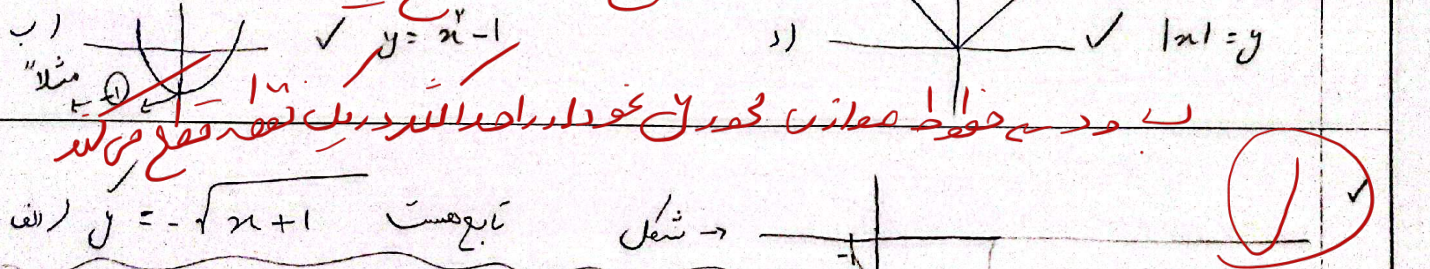 ب) ✓ y = x² - 1
د) ✓ |x| = y
مثلاً -1
ب و د ← خطوط موازی محور y نمودار را حداکثر در یک نقطه قطع می‌کند
الف) y = -√x+1 تابع هست
شکل → -1
✓